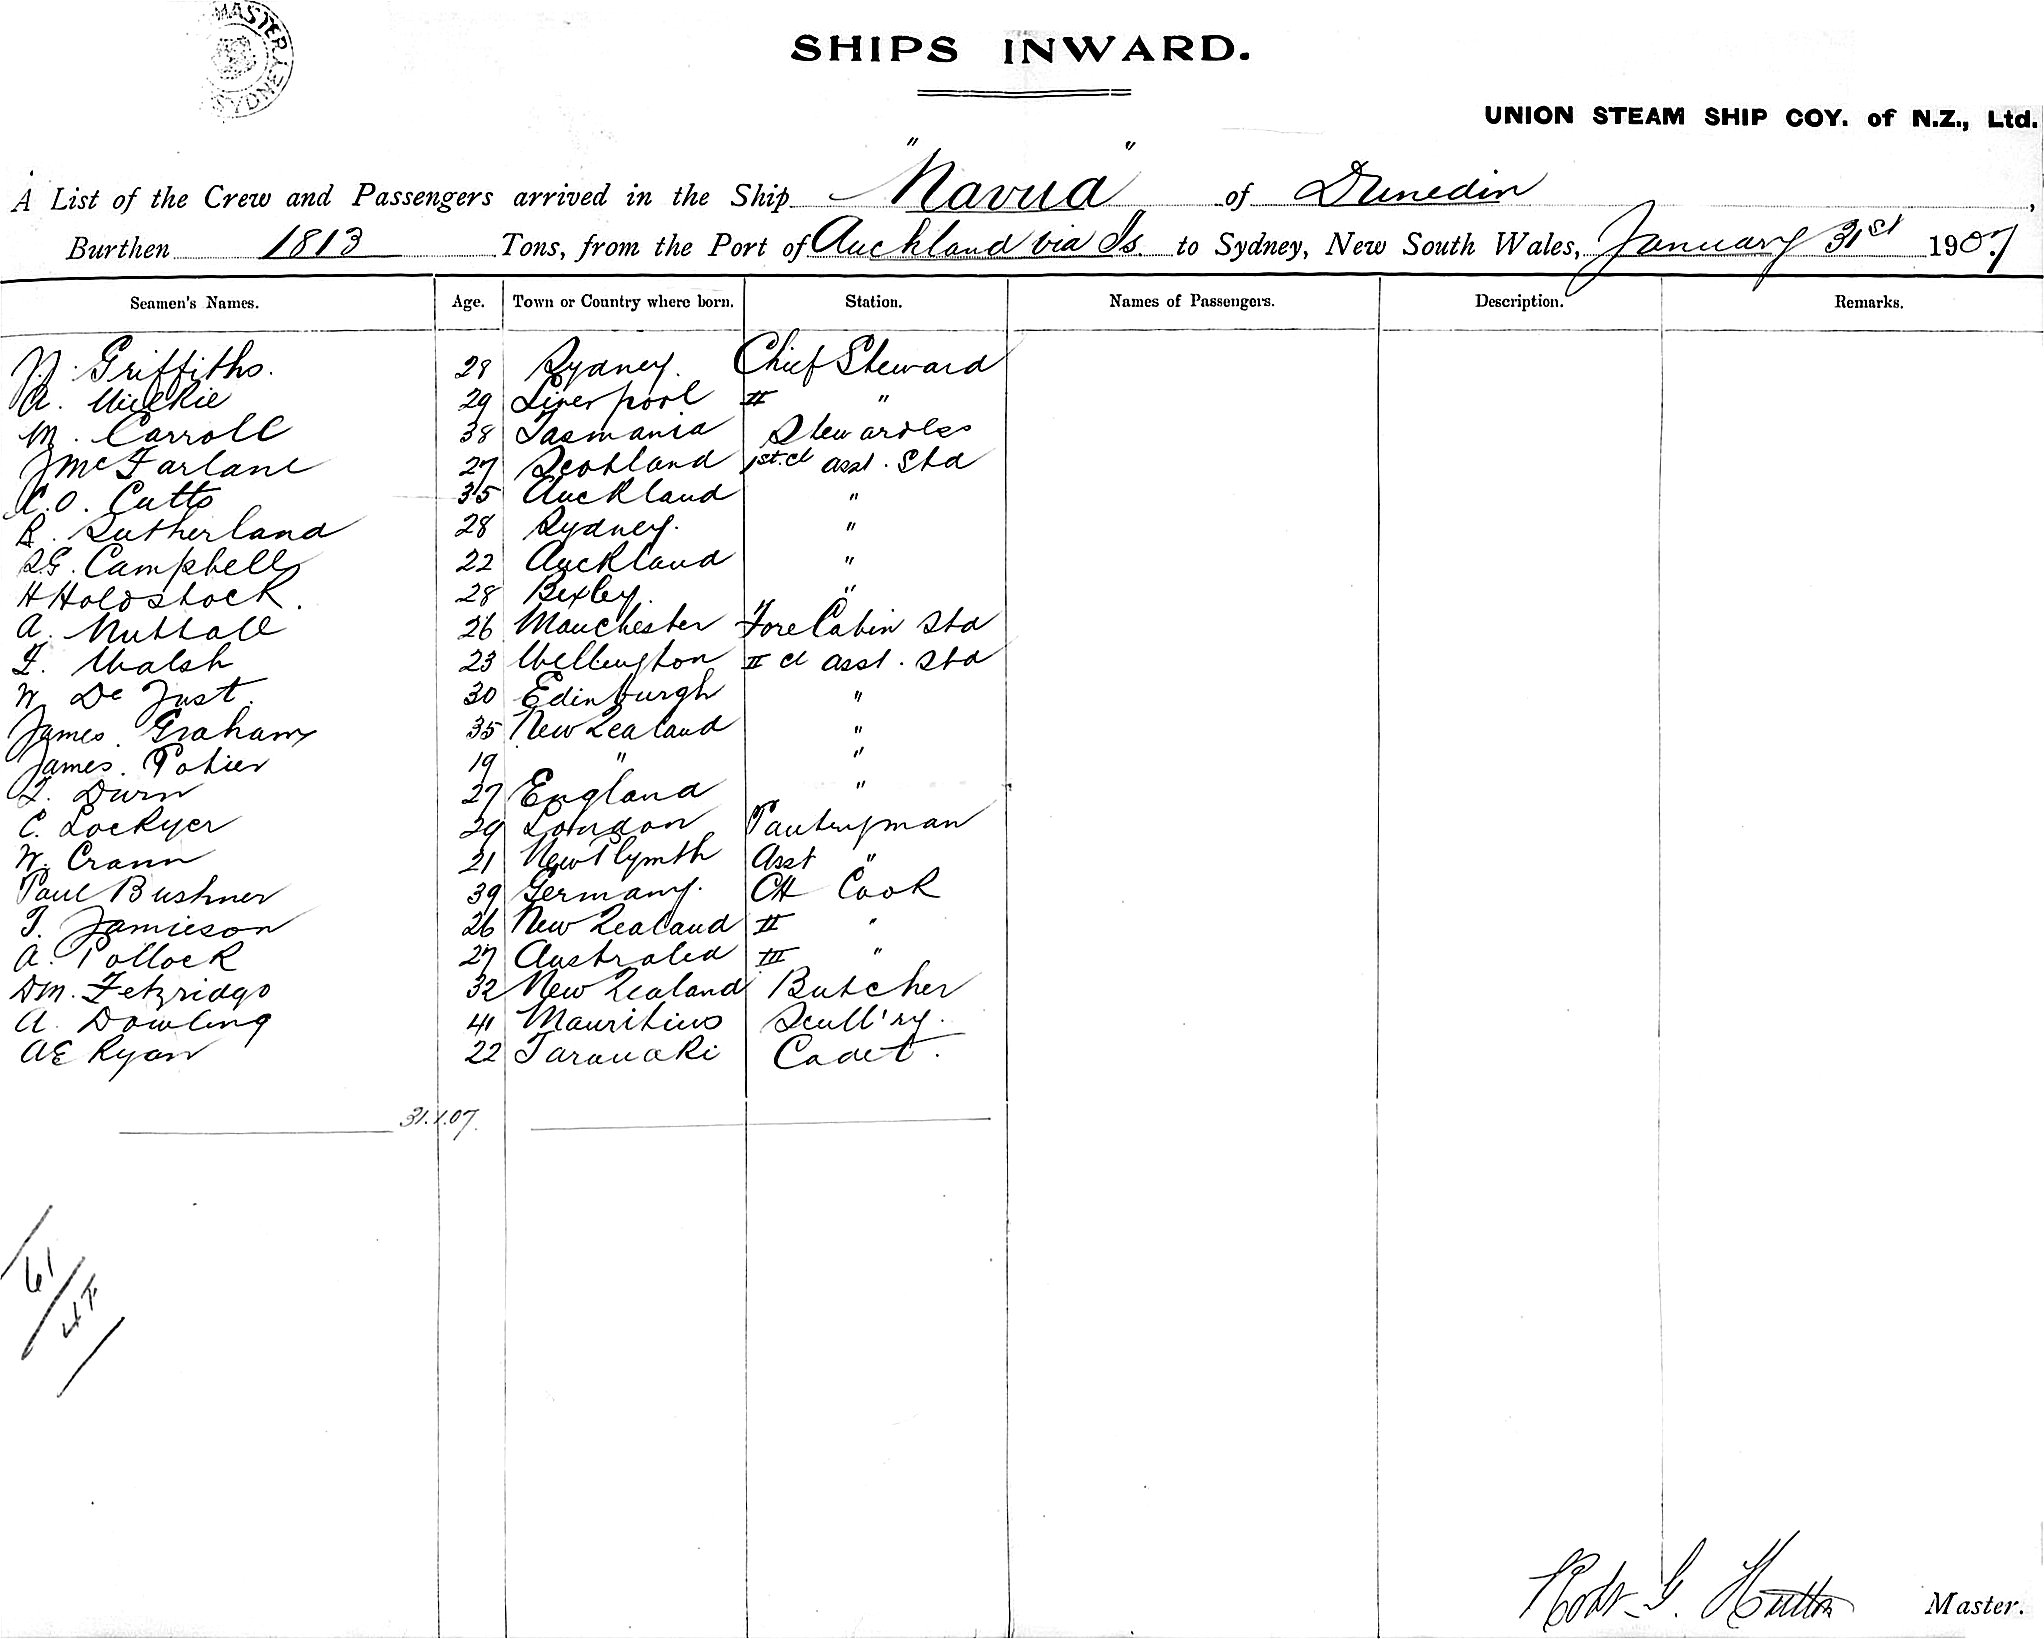 MASTER SYDNEY
SHIPS INWARD.
UNION STEAM SHIP COY. of N.Z., Ltd.
A List of the Crew and Passengers arrived in the Ship "Navua" of Dunedin,
Burthen 1813 Tons, from the Port of Auckland via Is. to Sydney, New South Wales, January 31st 1907
Seamen's Names. Age. Town or Country where born. Station. Names of Passengers. Description. Remarks.
Griffiths. 28 Sydney. Chief Steward
A. Wilkie 29 Liverpool II "
M. Carroll 38 Tasmania Stewardess
J McFarlane 27 Scotland 1st cl asst. Std
C.O. Cutts 35 Auckland "
R. Sutherland 28 Sydney. "
Campbell 22 Auckland "
H Holdstock. 28 Bexley. "
A. Nuttall 26 Manchester Fore Cabin Std
F. Walsh 23 Wellington II cl asst. Std
W De Just. 30 Edinburgh "
James Graham 35 New Zealand "
James. Potier 19 " "
Durn 27 England "
C. Lockyer 29 London Pantryman
W. Crann 21 New Plymth Asst "
Paul Bushner 39 Germany. CH Cook
T. Jamieson 26 New Zealand II "
A. Pollock 27 Australia III "
DM. Fetzridgo 32 New Zealand Butcher
A. Dowling 41 Mauritius Scull'ry.
AE Ryan 22 Taranaki Cadet.
31.1.07.
61
Robt. G. Hutton Master.